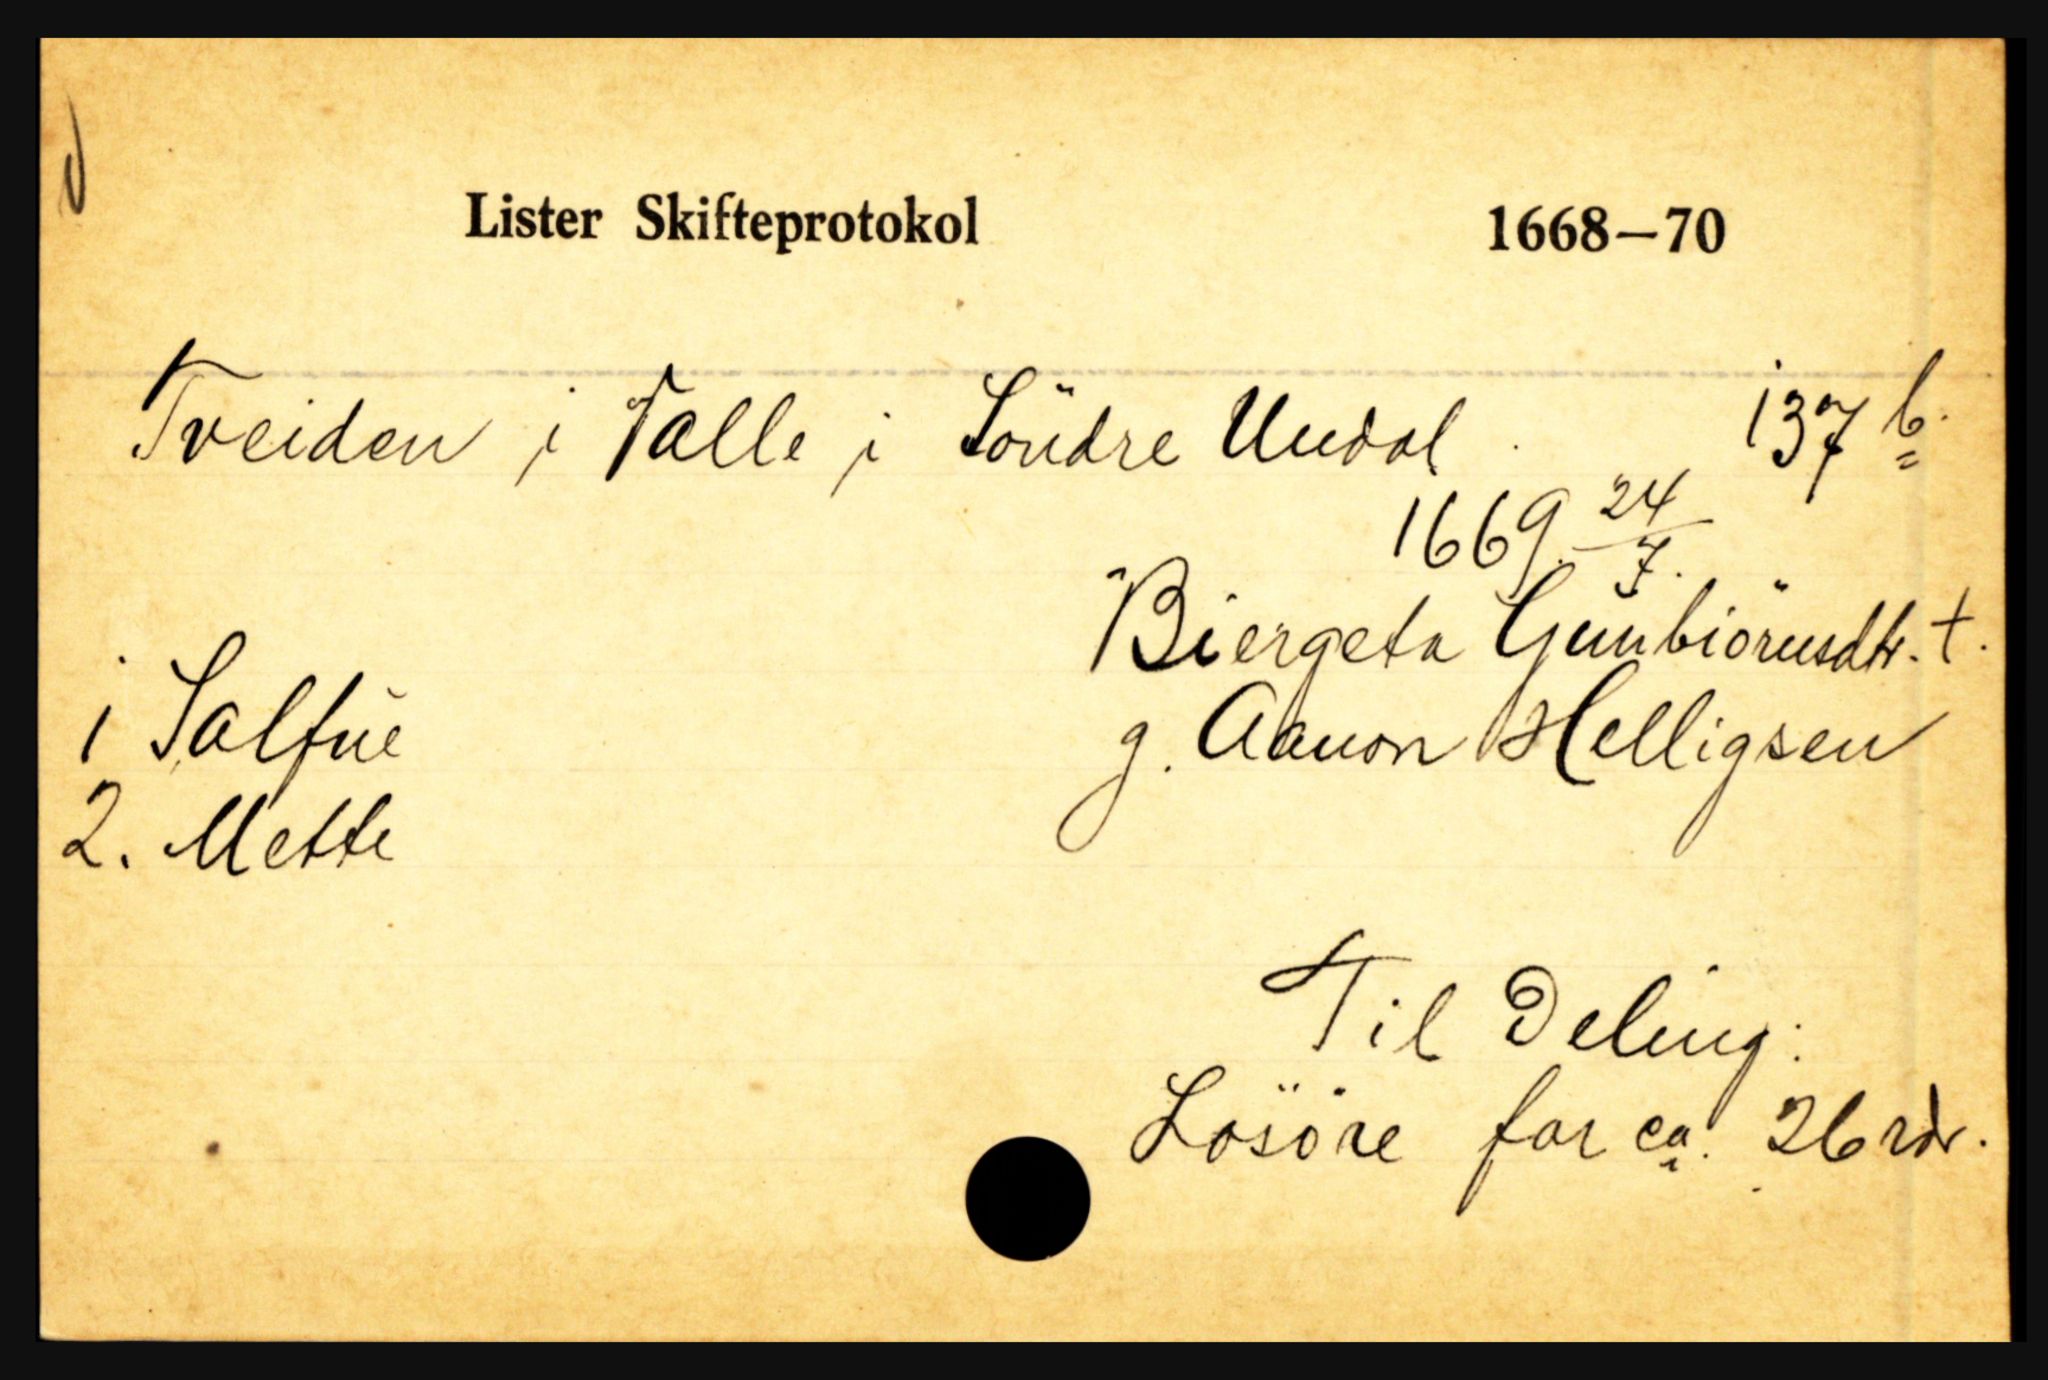 Lister Skifteprotokol 1668—70
Tveiden i Valle i Söndre Undal. 137 b.
1669. 24/7.
Biergeta Gunbiörnsdtr. †.
g. Aanon Helligsen
1 Salfue
2. Mette
Til Deling:
Losöre for ca. 26 rdr.